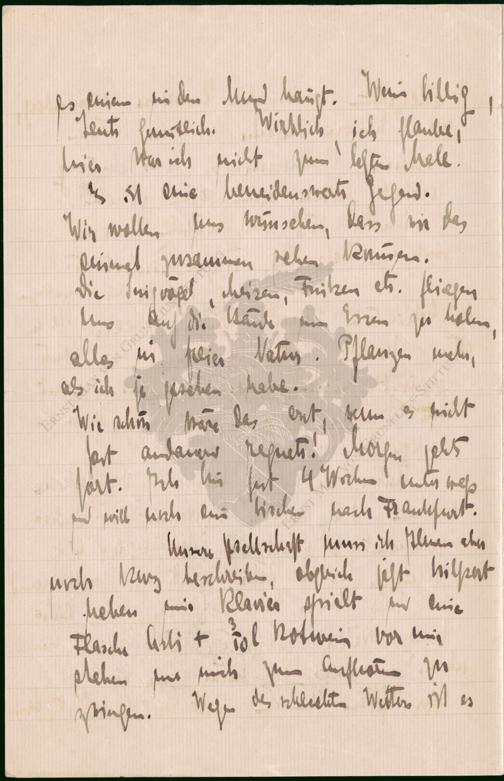 es einem in den Mund hängt. Wein billig,
Leute gemütlich. Wirklich, ich glaube,
hier war ich nicht zum letzten Male.
Es ist eine beneidenswerte Gegend.
Wir wollen uns wünschen, dass wir das
einmal zusammen sehen können.
Die Singvögel, Meisen, Finken etc. fliegen
uns auf die Hände um Essen zu holen,
alles in freier Natur. Pflanzen mehr,
als ich je gesehen habe.
Wie schön wäre das erst, wenn es nicht
fast andauernd regnete! Morgen gehts
fort. Ich bin fast 4 Wochen unterwegs
und will noch ein bischen nach Frankfurt.
Unsere Gesellschaft muss ich Ihnen aber
noch kurz beschreiben, obgleich jetzt
neben mir Klavier spielt und eine
Flasche Asti + 3/10 l Rotwein vor mir
stehen und mich zum Aufhören zu
zwingen. Wegen des schlechten Wetters ist es